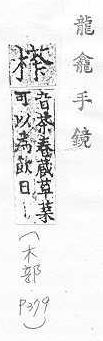 龍龕手鏡
音茶春藏草葉
可以為飲曰
(木部 P379)